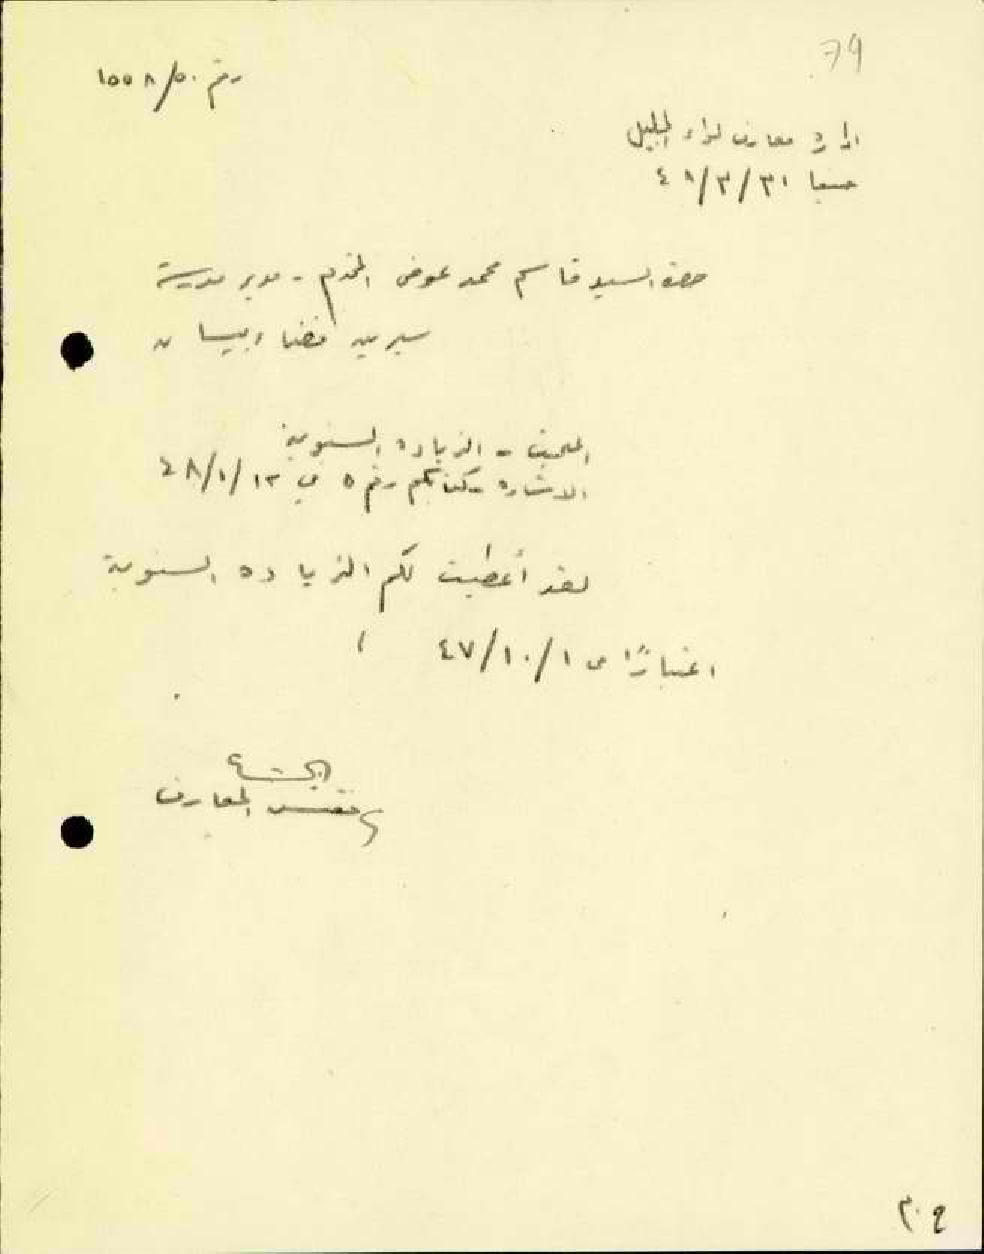 79
رقم ١٥٥٨/٥٠
ادارة معارف لواء الجليل
حيفا ٤٨/٣/٣١
حضرة السيد قاسم محمد عوض المحترم - مدير مدرسة
سيرين قضاء بيسان
المبحث - الزيادة السنوية
الاشارة - كتابكم رقم ٥ في ٤٨/١/١٢
لقد أعطيت لكم الزيادة السنوية
اعتبارًا من ٤٧/١٠/١
مفتش المعارف